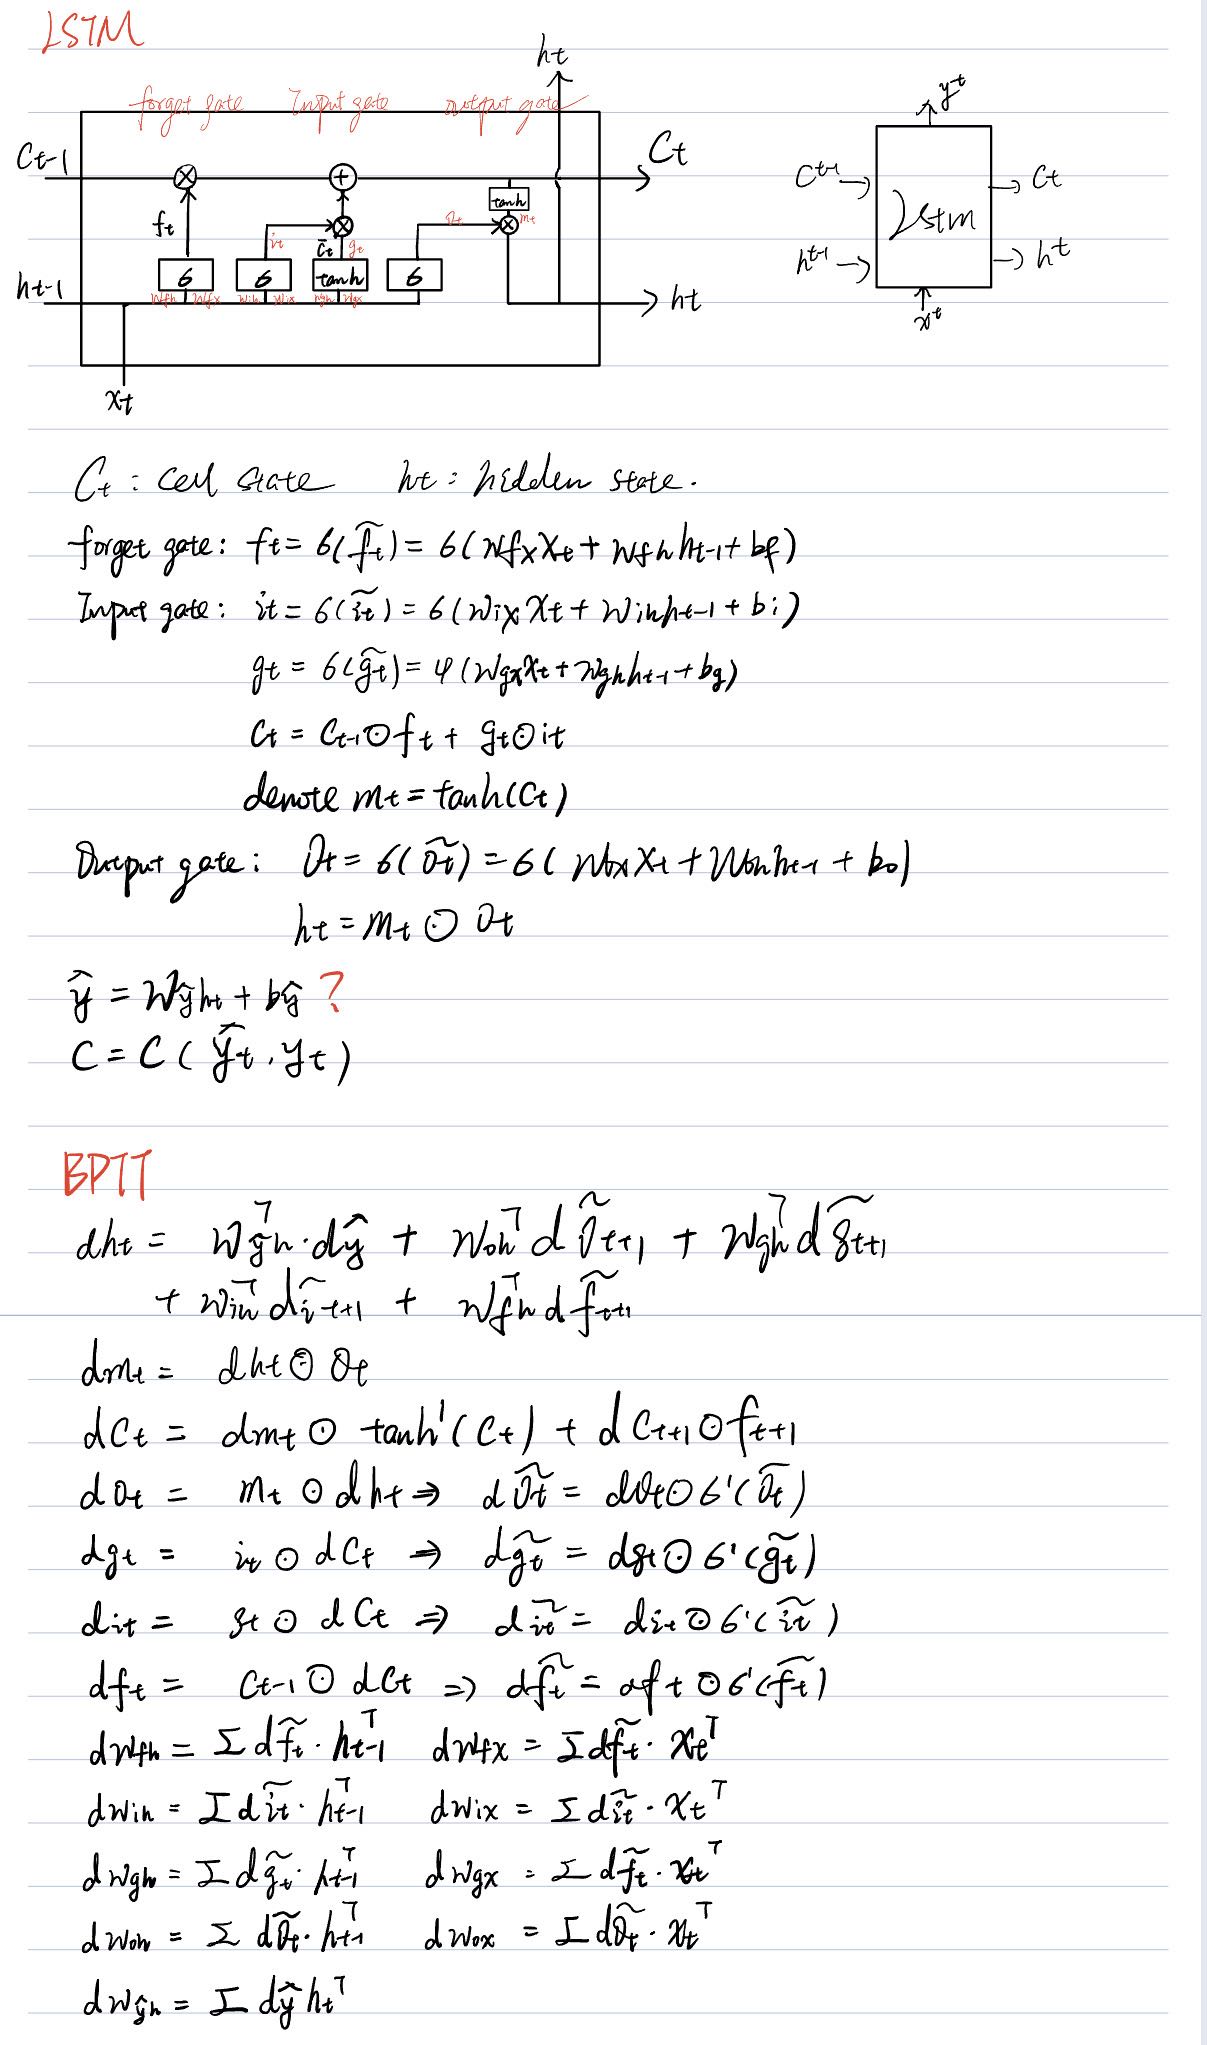 LSTM
ht
forget gate Input gate output gate
Ct-1
Ct
tanh
ft
it
c̄t
gt
Ot
mt
σ σ tanh σ
Wfh Wfx Wih Wix Wgh Wgx
ht-1
ht
xt
yt
Ct-1
Ct
Lstm
ht-1
ht
xt
Ct : cell state ht : hidden state.
forget gate: ft = σ(f̃t) = σ(Wfx Xt + Wfh ht-1 + bf)
Input gate: it = σ(ĩt) = σ(Wix Xt + Wih ht-1 + bi)
gt = σ(g̃t) = φ(Wgx Xt + Wgh ht-1 + bg)
Ct = Ct-1 ⊙ ft + gt ⊙ it
denote mt = tanh(Ct)
Output gate: Ot = σ(Õt) = σ(Wox Xt + Woh ht-1 + bo)
ht = mt ⊙ Ot
ŷ = Wŷ ht + bŷ ?
C = C(ŷt, yt)
BPTT
dht = Wŷh^T · dŷ + Woh^T dÕt+1 + Wgh^T dg̃t+1
+ Wih^T dĩt+1 + Wfh^T df̃t+1
dmt = dht ⊙ Ot
dCt = dmt ⊙ tanh'(Ct) + dCt+1 ⊙ ft+1
dOt = mt ⊙ dht ⇒ dÕt = dOt ⊙ σ'(Õt)
dgt = it ⊙ dCt ⇒ dg̃t = dgt ⊙ σ'(g̃t)
dit = gt ⊙ dCt ⇒ dĩt = dit ⊙ σ'(ĩt)
dft = Ct-1 ⊙ dCt ⇒ df̃t = dft ⊙ σ'(f̃t)
dWfh = Σ df̃t · ht-1^T dWfx = Σ df̃t · Xt^T
dWih = Σ dĩt · ht-1^T dWix = Σ dĩt · Xt^T
dWgh = Σ dg̃t · ht-1^T dWgx = Σ df̃t · Xt^T
dWoh = Σ dÕt · ht-1^T dWox = Σ dÕt · Xt^T
dWŷh = Σ dŷ ht^T